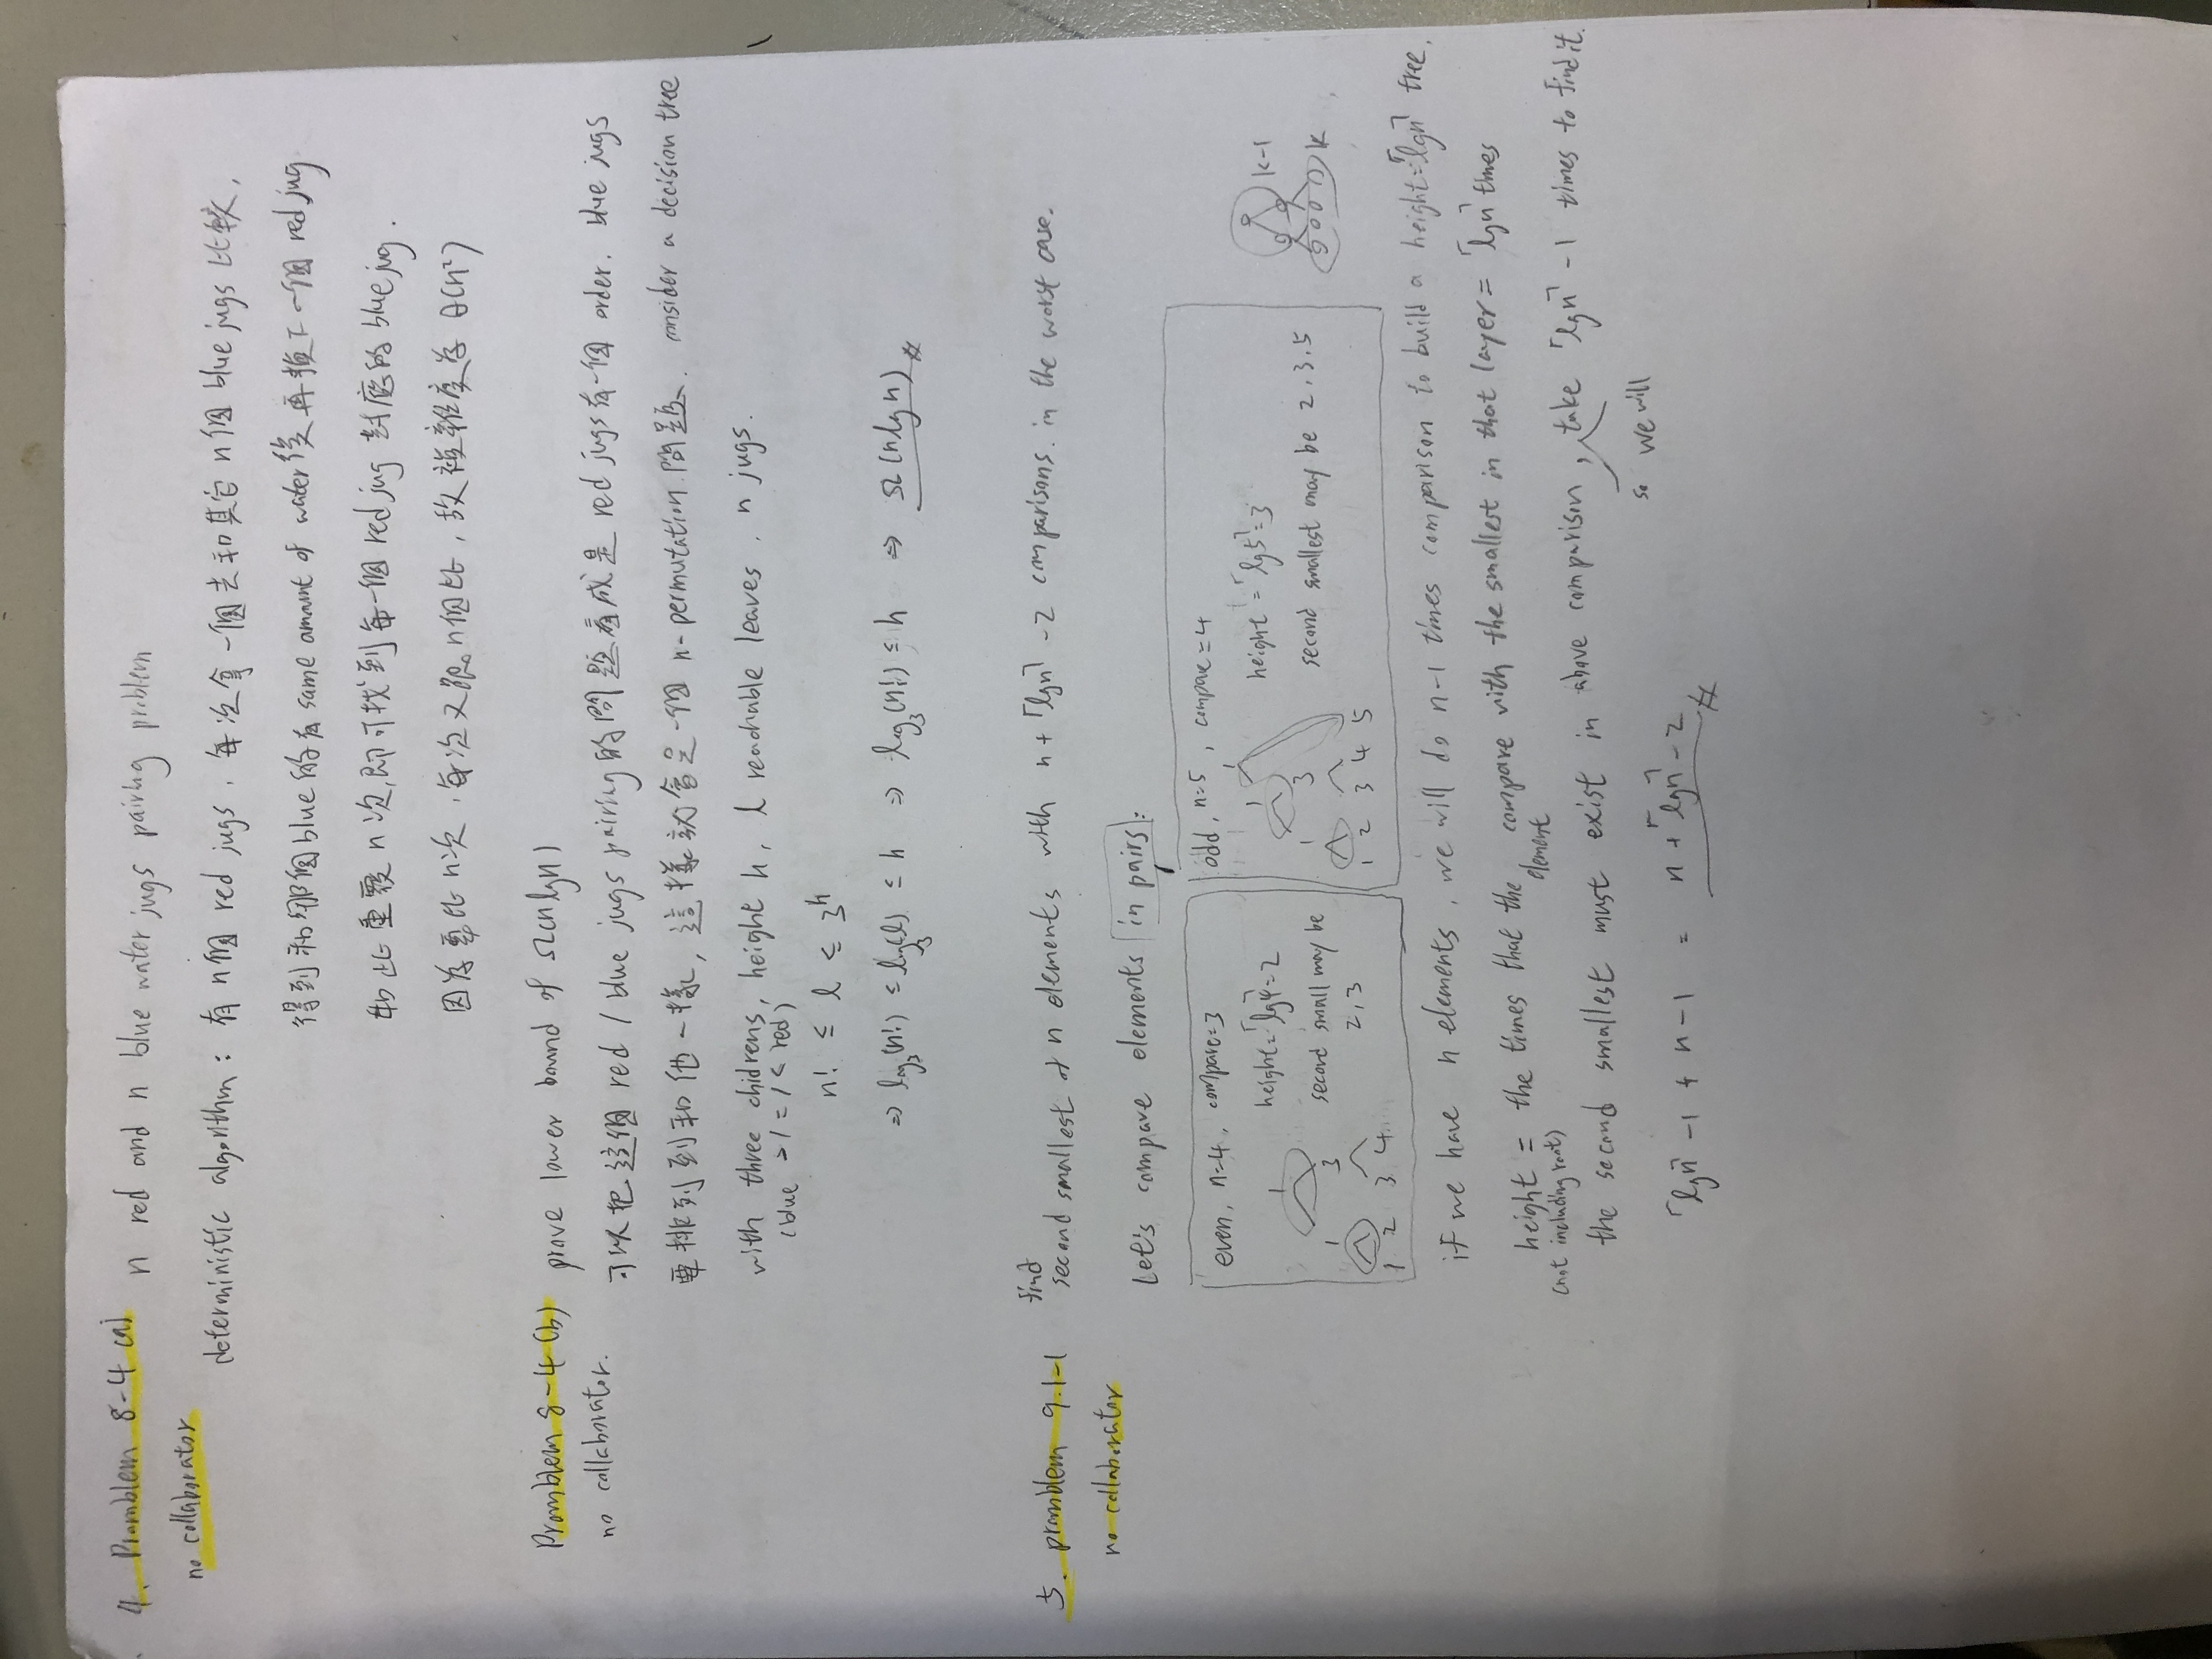 4. Promblem 8-4 (a) n red and n blue water jugs pairing problem
no collaborator
deterministic algorithm: 有 n個 red jugs, 每次拿一個去和其它 n個 blue jugs 比較,
得到和哪個blue的有 same amount of water後再換下一個 red jug
如此重覆 n次,即可找到每一個 red jug 對應的 blue jug.
因為要比 n次, 每次又跟n個比, 故複雜度為 θ(n²)
Promblem 8-4 (b) prove lower bound of Ω(n lg n)
no collaborator.
可以把這個 red / blue jugs pairing的問題看成是 red jugs有一個 order. blue jugs
要排列到和他一樣, 這樣就會是一個 n-permutation 問題. consider a decision tree
with three chidrens, height h, l reachable leaves, n jugs.
(blue >/=/< red)
n! ≤ l ≤ 3^h
⇒ log₃(n!) ≤ log₃(l) ≤ h ⇒ log₃(n!) ≤ h ⇒ Ω(n lg n)
5. promblem 9.1-1 find
second smallest of n elements with n + ⌈lgn⌉ - 2 comparisons. in the worst case.
no collaborator
Let's compare elements in pairs:
even, n=4, compare=3
height=⌈lg4⌉=2
second small may be
2, 3
1
1 3
1 2 3 4
odd, n=5, compare=4
height=⌈lg5⌉=3
second smallest may be 2, 3, 5
1
1
1 3
1 2 3 4 5
k-1
k
if we have n elements, we will do n-1 times comparison to build a height=⌈lgn⌉ tree.
height = the times that the element compare with the smallest in that layer = ⌈lgn⌉ times
(not including root)
the second smallest must exist in above comparison, so we will take ⌈lgn⌉ - 1 times to find it.
⌈lgn⌉ - 1 + n - 1 = n + ⌈lgn⌉ - 2